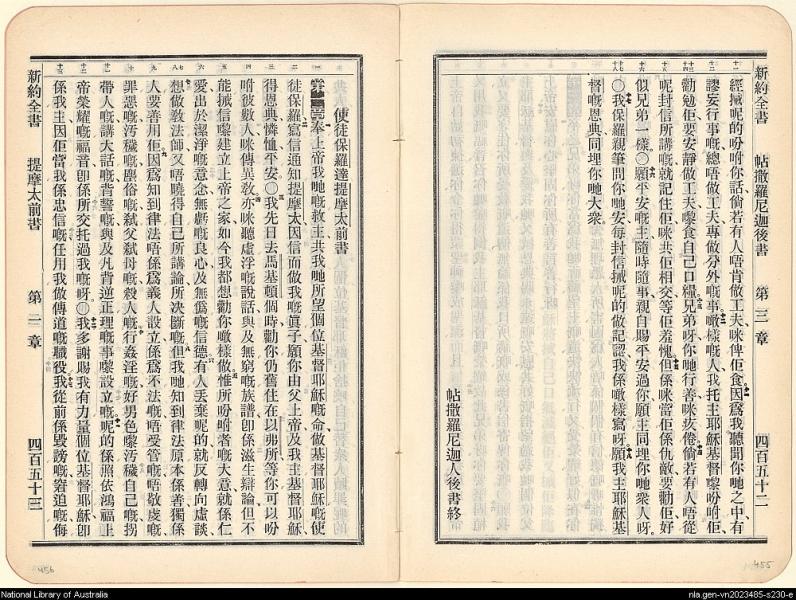 新約全書 帖撒羅尼迦後書 第三章 四百五十二
經搣呢的吩咐你話倘若有人唔肯做工夫咪俾佢食因爲我聽聞你哋之中有
謬妄行事嘅總唔做工夫專做分外嘅事噉樣嘅人我托主耶穌基督嚟吩咐佢
勸勉佢要安靜做工夫嚟食自己口糧兄弟呀你哋行善咪疲倦倘若有人唔從
呢封信所講嘅就記住佢咪共佢相交等佢羞愧但係咪當佢係仇敵要勸佢好
似兄弟一樣〇願平安嘅主隨時隨事親自賜平安過你願主同埋你哋衆人呀
〇我保羅親筆問你哋安每封信搣呢的做記認我係噉樣寫呀願我主耶穌基
督嘅恩典同埋你哋大衆
帖撒羅尼迦人後書終
455
使徒保羅達提摩太前書
奉上帝我哋嘅救主共我哋所望個位基督耶穌嘅命做基督耶穌嘅使
徒保羅寫信通知提摩太因信而做我嘅眞子願你由父上帝及我主基督耶穌
得恩典憐恤平安〇我先日去馬基頓個時勸你仍舊住在以弗所等你可以吩
咐彼數人咪傳異敎亦咪聽虛浮嘅說話與及無窮嘅族譜卽係滋生辯論但不
能搣信嚟建立上帝之家如今我都想勸你噉樣做惟所吩咐者嘅大意就係仁
愛出於潔淨嘅意念無虧嘅良心及無僞嘅信德有人丟棄呢的就反轉向虛談
想做敎法師又唔曉得自己所講論所决斷嘅但我哋知到律法原本係善獨係
人要善用佢因爲知到律法唔係爲義人設立係爲不法嘅唔受管嘅唔敬虔嘅
罪惡嘅汚穢嘅塵俗嘅弒父弒母嘅殺人嘅行姦淫嘅好男色嚟汚穢自己嘅拐
帶人嘅講大話嘅背誓嘅與及凡背逆正理嘅事嚟設立嘅呢的係照依鴻福上
帝榮耀嘅福音卽係所交托過我嘅呀〇我多謝賜我有力量個位基督耶穌卽
係我主因佢當我係忠信嘅任用我做傳道嘅職役我從前係毀謗嘅窘迫嘅侮
新約全書 提摩太前書 第一章 四百五十三
456
National Library of Australia
nla.gen-vn2023485-s230-e